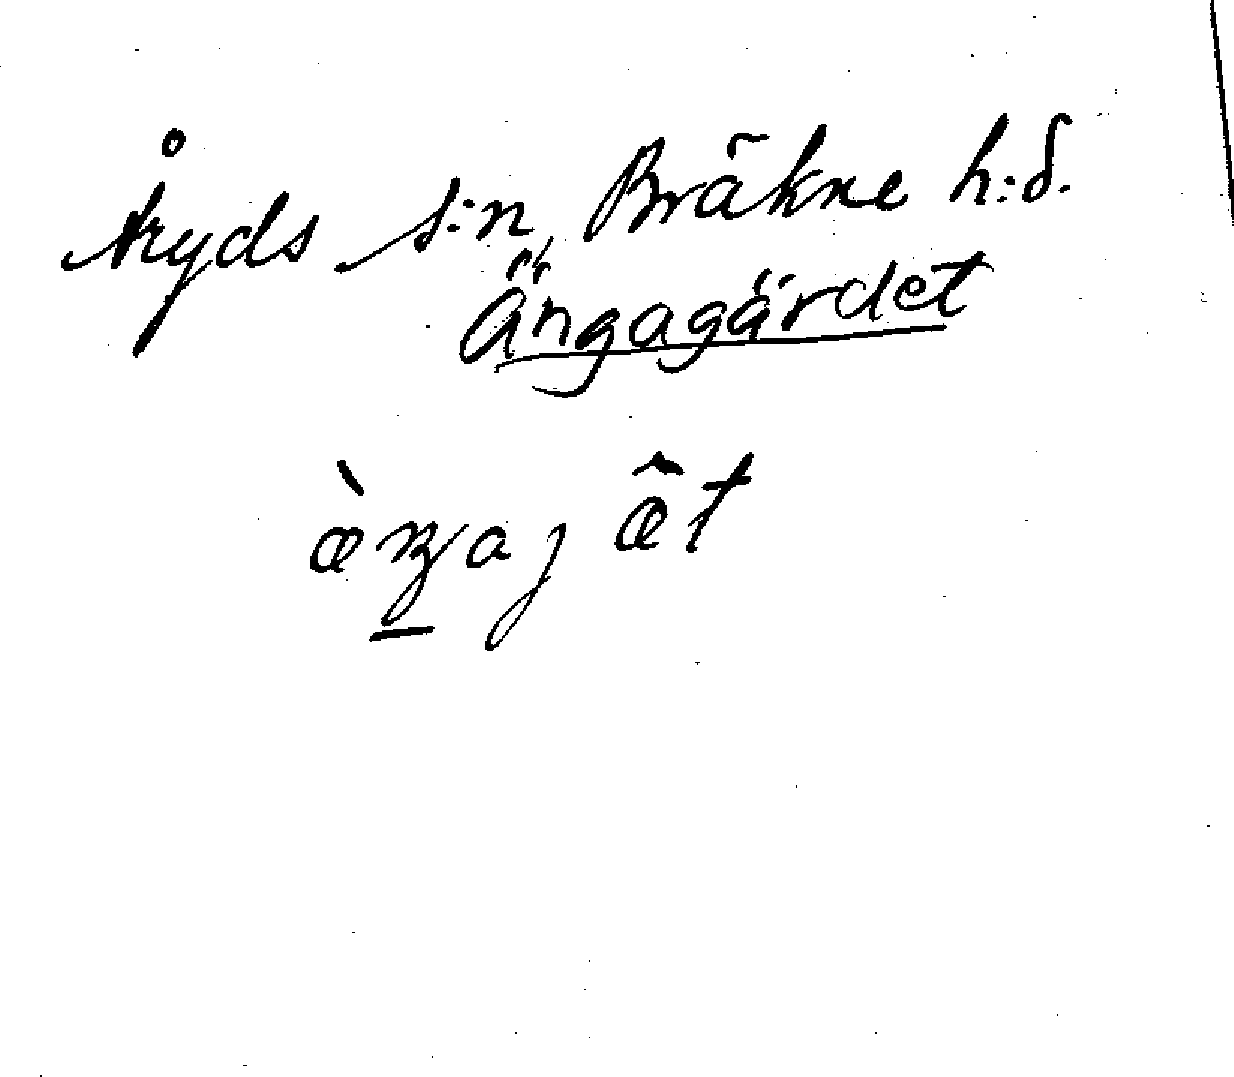 Åryds s:n, Bräkne h:d.
Ängagärdet
æ̀ŋajæ̂t